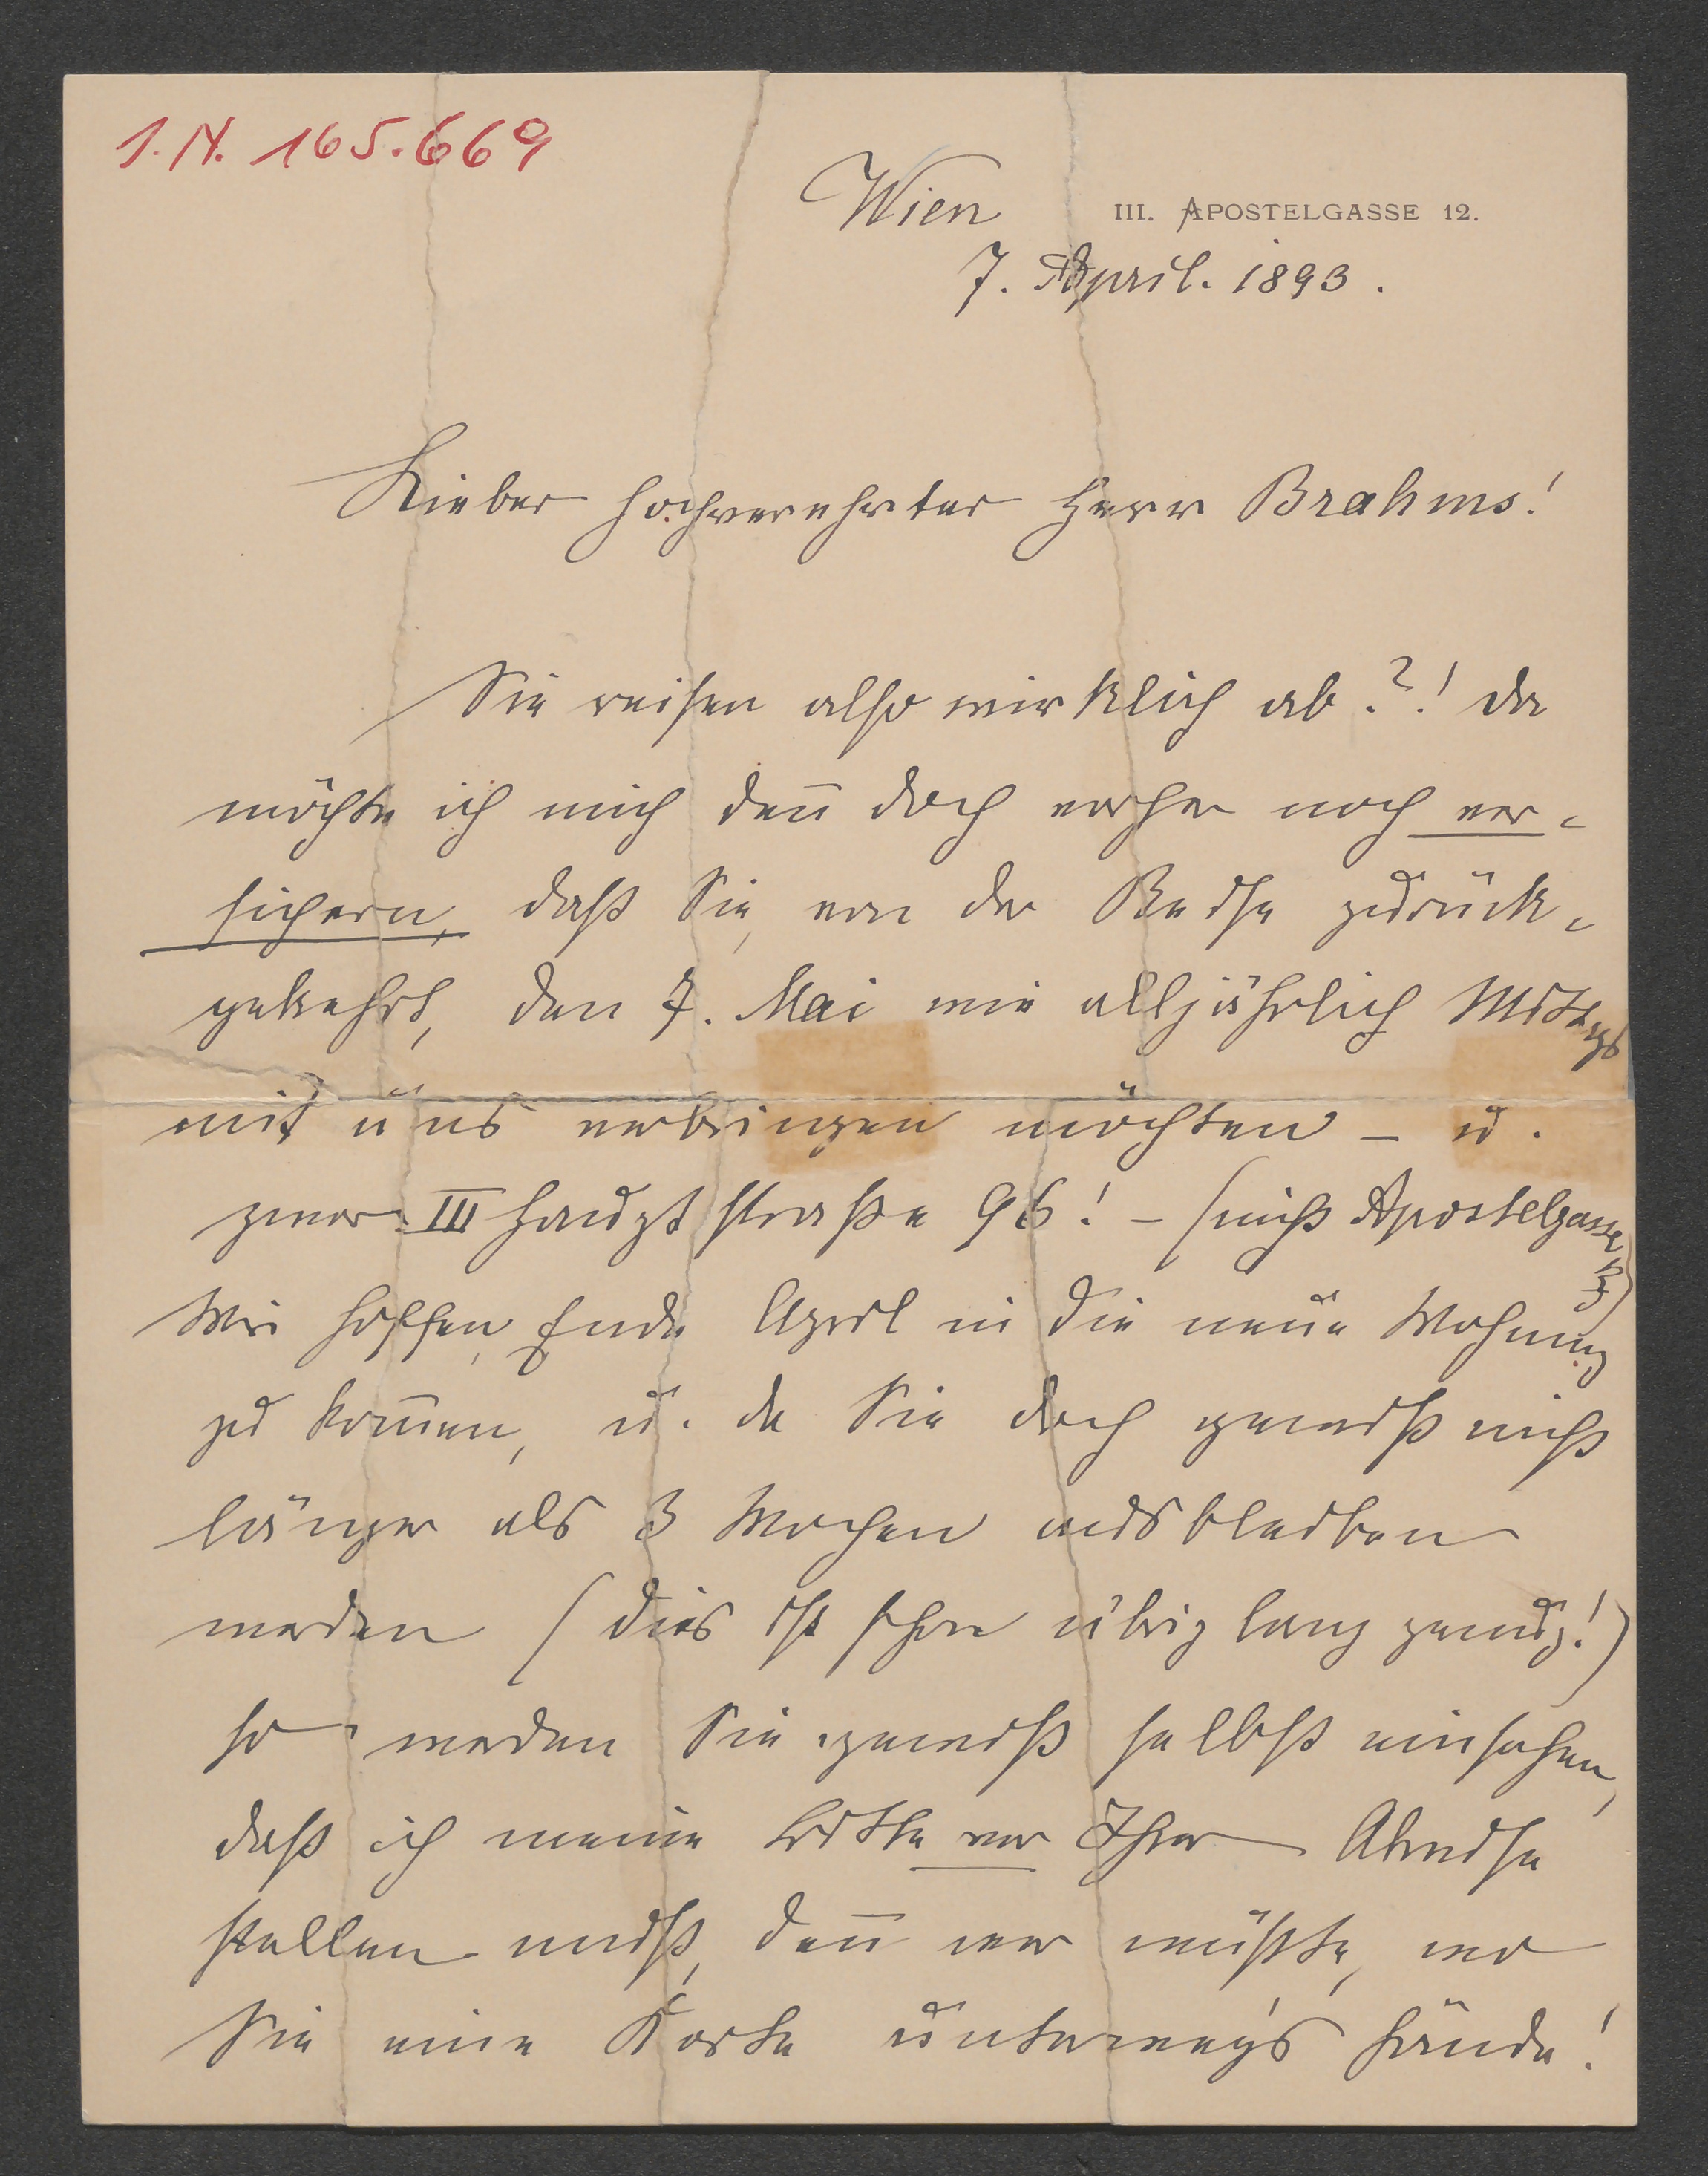 I.N. 165.669
Wien III. APOSTELGASSE 12.
7. April. 1893.
Lieber hochverehrter Herr Brahms!
Sie reisen also wirklich ab?! Da
möchte ich mich den̄ doch vorher noch ver-
sichern, daß Sie, von der Reise zurück-
gekehrt, den 7. Mai wie alljährlich Mittags
mit uns verbringen möchten – u.
zwar III Hauptstraße 96! – (nicht Apostelgasse
Wir hoffen, Ende April in die neue Wohnung
zu kom̄en, u. da Sie doch gewiß nicht
länger als 3 Wochen ausbleiben
werden (dies ist schon übrig lang genug!)
so werden Sie gewiß selbst einsehen,
daß ich meine Bitte vor Ihrer Abreise
stellen muß, den̄ wer wüßte, wo
Sie eine Karte unterwegs fände!